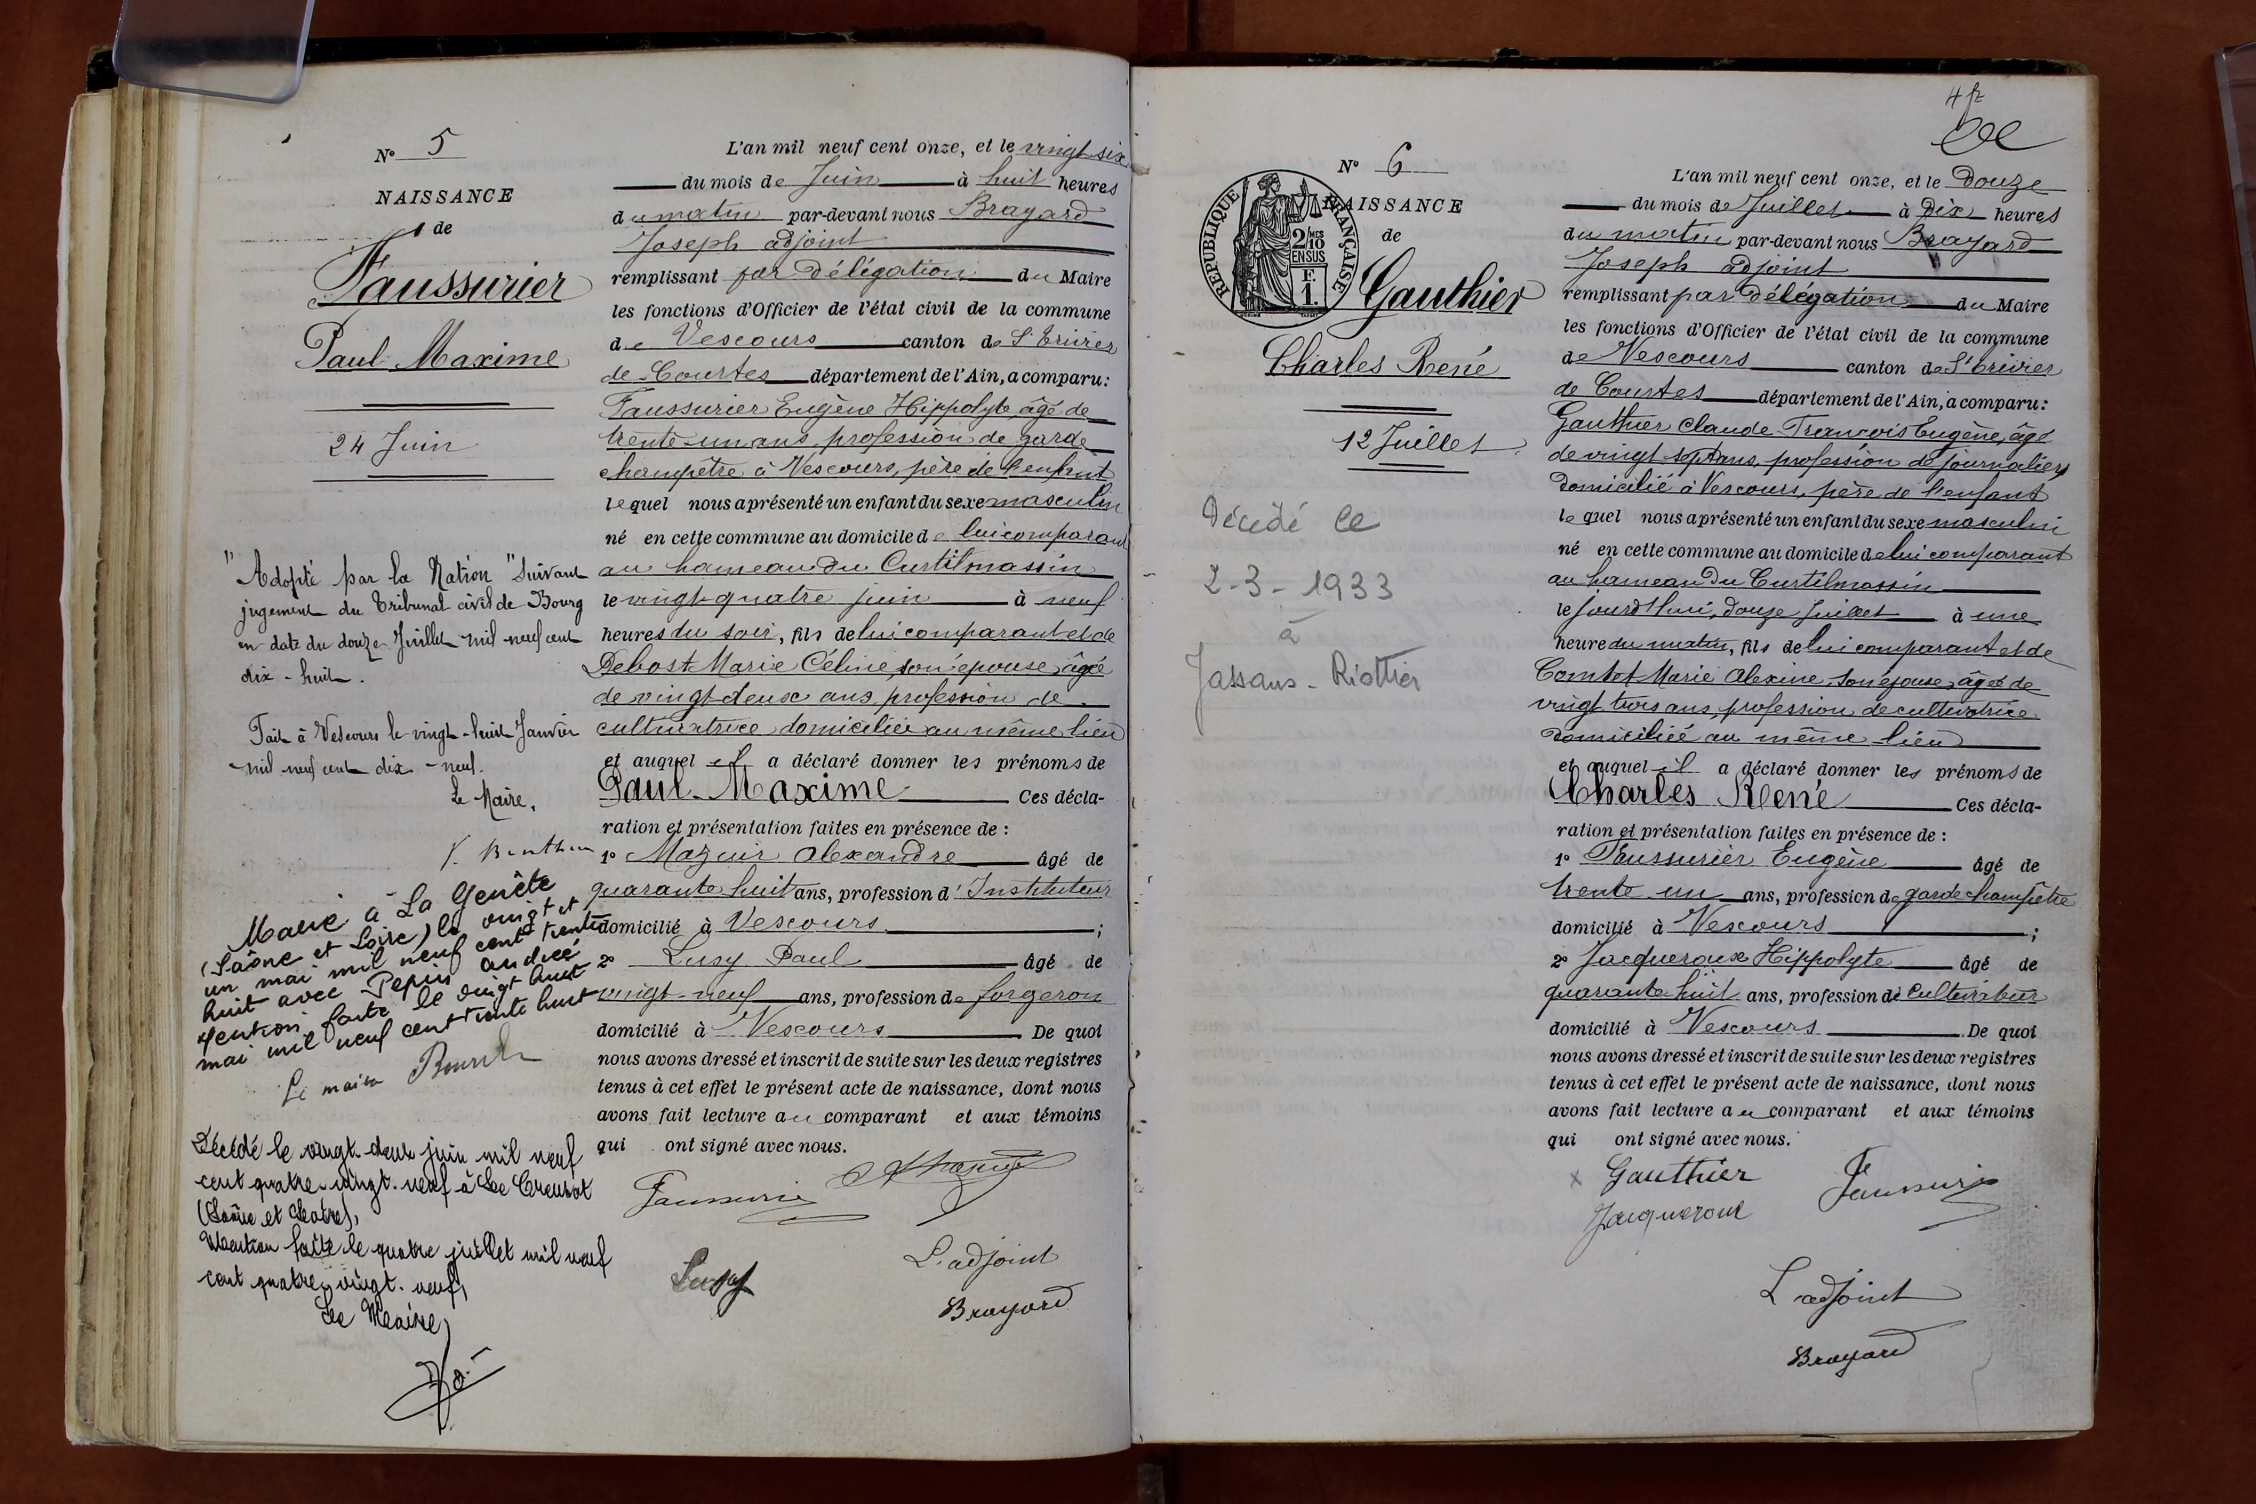 N° 5
NAISSANCE
de
Faussurier
Paul Maxime
24 Juin
"Adopté par la Nation" suivant
jugement du Tribunal civil de Bourg
en date du douze Juillet mil neuf cent
dix-huit.
Fait à Vescours le vingt-huit Janvier
mil neuf cent dix-neuf.
Le Maire,
Marié à La Genête
(Saône et Loire) le vingt et
un mai mil neuf cent trente
huit avec Pepin andrée
Mention faite le vingt huit
mai mil neuf cent trente huit
Le maire
Décédé le vingt-deux juin mil neuf
cent quatre-vingt-neuf à Le Creusot
(Saône et Loire),
Mention faite le quatre juillet mil neuf
cent quatre-vingt-neuf,
Le Maire,
L'an mil neuf cent onze, et le vingt six
du mois de Juin à huit heures
du matin par-devant nous Brayard
Joseph adjoint
remplissant par délégation du Maire
les fonctions d'Officier de l'état civil de la commune
de Vescours canton de St Trivier
de Courtes département de l'Ain, a comparu:
Faussurier Eugène Hippolyte âgé de
trente-un ans profession de garde
champêtre à Vescours, père de l'enfant
lequel nous a présenté un enfant du sexe masculin
né en cette commune au domicile de lui comparant
au hameau du Curtilmassin
le vingt-quatre juin à neuf
heures du soir, fils de lui comparant et de
Debost Marie Céline, son épouse, âgée
de vingt-deux ans profession de
cultivatrice domiciliée au même lieu
et auquel il a déclaré donner les prénoms de
Paul Maxime Ces décla-
ration et présentation faites en présence de :
1° Mazuir Alexandre âgé de
quarante huit ans, profession d'Instituteur
domicilié à Vescours ;
2° Lusy Paul âgé de
vingt-neuf ans, profession de forgeron
domicilié à Vescours De quoi
nous avons dressé et inscrit de suite sur les deux registres
tenus à cet effet le présent acte de naissance, dont nous
avons fait lecture au comparant et aux témoins
qui ont signé avec nous.
Faussurier
Lusy
L'adjoint
Brayard
N° 6
REPUBLIQUE FRANÇAISE
2/10 EN SUS
F
1.
NAISSANCE
de
Gauthier
Charles René
12 Juillet
Décédé le
2-3-1933
à
Jassans-Riottier
L'an mil neuf cent onze, et le Douze
du mois de Juillet à Dix heures
du matin par-devant nous Brayard
Joseph adjoint
remplissant par délégation du Maire
les fonctions d'Officier de l'état civil de la commune
de Vescours canton de St trivier
de Courtes département de l'Ain, a comparu:
Gauthier Claude François Eugène, âgé
de vingt sept ans, profession de journalier,
domicilié à Vescours, père de l'enfant
lequel nous a présenté un enfant du sexe masculin
né en cette commune au domicile de lui comparant
au hameau du Curtilmassin
le jourd'hui, douze juillet à une
heure du matin, fils de lui comparant et de
Comtet Marie Alexine son épouse, âgée de
vingt trois ans, profession de cultivatrice
domiciliée au même lieu
et auquel il a déclaré donner les prénoms de
Charles René Ces décla-
ration et présentation faites en présence de :
1° Faussurier Eugène âgé de
trente un ans, profession de garde champêtre
domicilié à Vescours ;
2° Jacqueroux Hippolyte âgé de
quarante huit ans, profession de cultivateur
domicilié à Vescours De quoi
nous avons dressé et inscrit de suite sur les deux registres
tenus à cet effet le présent acte de naissance, dont nous
avons fait lecture au comparant et aux témoins
qui ont signé avec nous.
Gauthier Faussurier
Jacqueroux
L'adjoint
Brayard